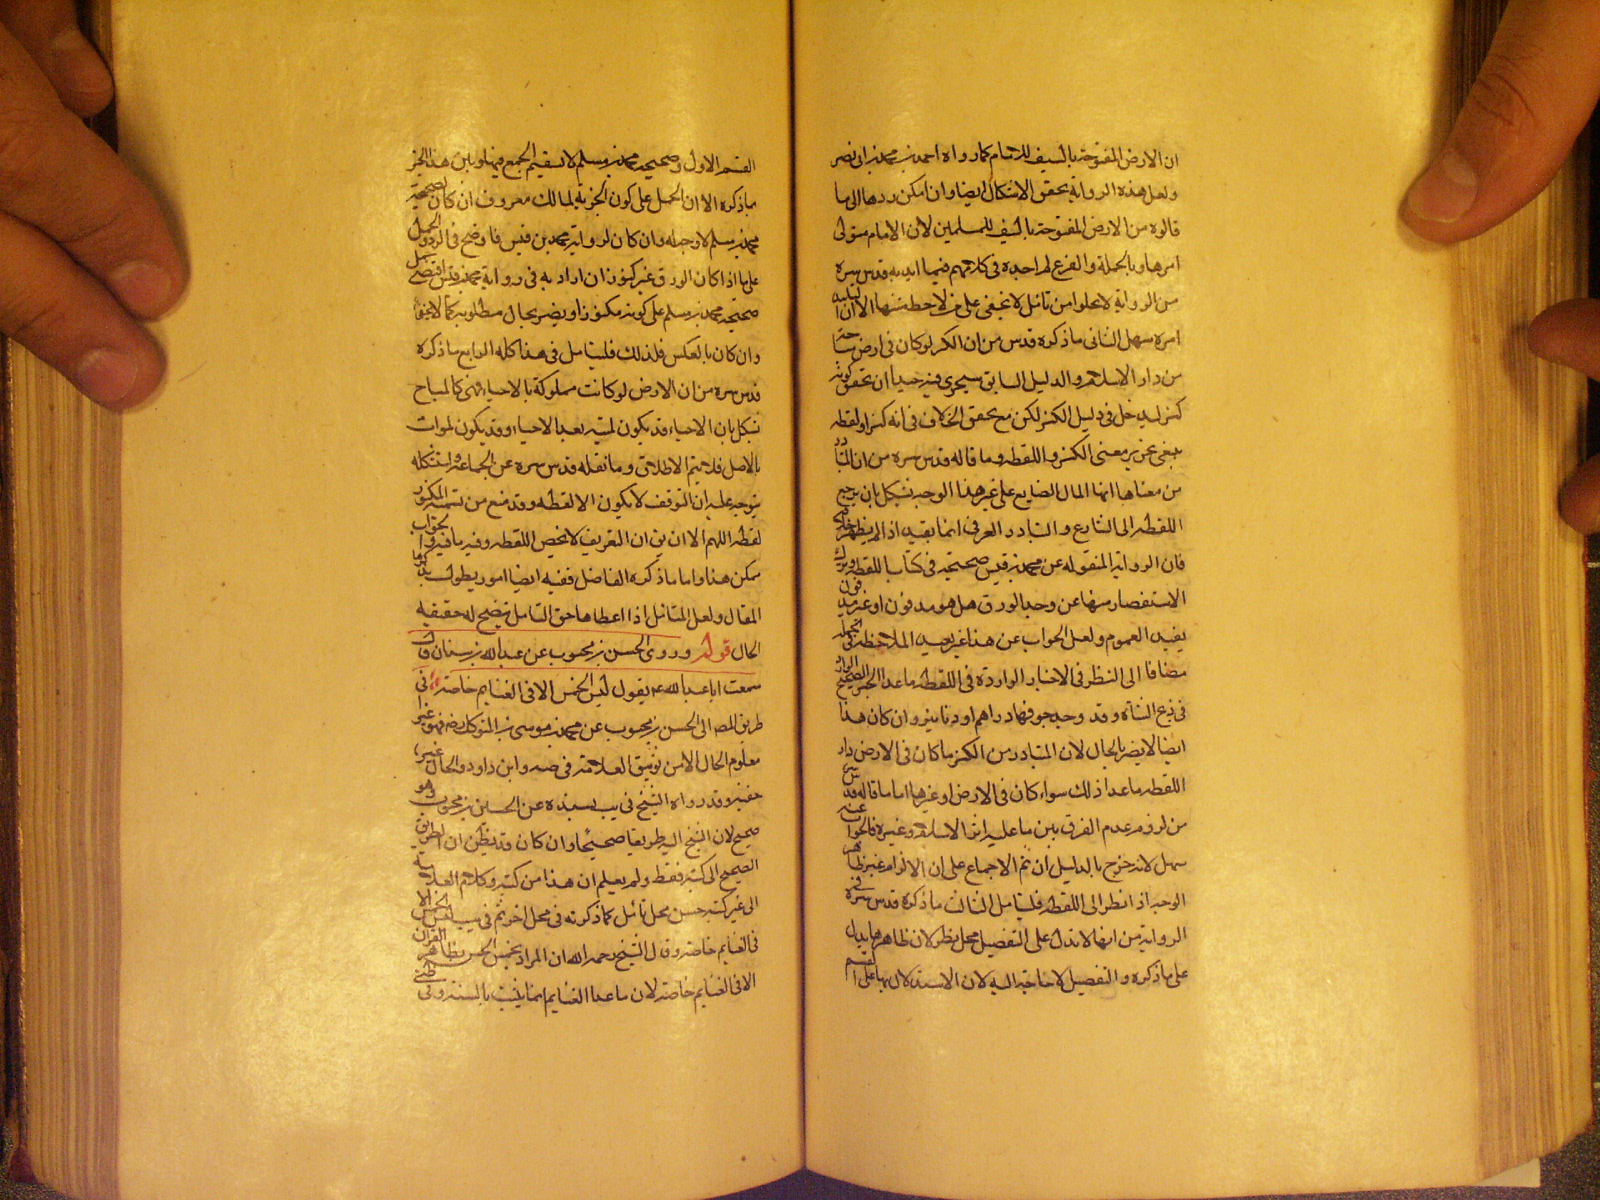 ان الارض المفتوحة بالسيف للامام كما رواه احمد بن محمد بن ابى نصر
ولعل هذه الرواية يحقق الاشكال ايضا وان امكن ردها الى ما
قالوه من الارض المفتوحة بالسيف للمسلمين لان الامام متولى
امرها وبالجملة والفرع لم اجده فى كلامهم فيما ايد به قدس سره
من الرواية لا يخلو امن تامل لا يخفى على من لاحظ متنها الا ان
امره سهل الثانى ما ذكره قدس من ان الكنز لو كان فى ارض
من دار الاسلام والدليل السابق سيجرى فيه حيا ان تحقق كونه
كنز ليدخل فى دليل الكنز لكن مع تحقق الخلاف فى انه كنز او لقطه
ينبغى تحرير معنى الكنز واللقطه وما قاله قدس سره من ان التبادر
من معناها انها المال الضايع على غير هذا الوجه يشكل بان يرجع
اللقطه الى الشارع والتبادر العرفى انما يفيد اذا لم يظهر خلافه
فان الرواية المنقوله عن محمد بن قيس صحيحة فى كتاب اللقطه وترك
الاستفصار منها عن وجد الورق هل هو مدفون او غير مدفون
يفيد العموم ولعل الجواب عن هذا غير بعيد الملاحظه
مضافا الى النظر فى الاخبار الواردة فى اللقطه ما عدا الخبر الصحيح الوارد
فى ذبح الشاة وقد وجد جوفها دراهم او دنانير وان كان هذا
ايضا لا يضر بالحال لان المتبادر من الكنز ما كان فى الارض دار
اللقطه ما عدا ذلك سواء كان فى الارض او غيرها اما ما قاله قدس
من لزوم عدم الفرق بين ما عليه اثر الاسلام وغيره فالجواب عنه
سهل لانه خرج بالدليل ان تم الاجماع على ان الالزام غير ظاهر
الوجه اذا نظر الى اللقطه فليتامل الثالث ما ذكره قدس سره فى
الرواية من انها لا تدل على التفصيل محل نظر لان ظاهرها يدل
على ما ذكره والتفصيل لا حاجة اليه لان الاستدلال بها على القسم
القسم الاول وصحيحة محمد بن مسلم لا يستقيم الجمع فيها وبين هذا الخبر
ما ذكره الا ان الحمل على كون الخربة لمالك معروف ان كان لصحيحة
محمد بن مسلم لا وجه له وان كان لرواية محمد بن قيس فاوضح فى الرد والحمل
على ما اذا كان الورق غير كنوز ان اراد به فى رواية محمد بن قيس اقتضى حمل
صحيحة محمد بن مسلم على كونه مكنوزا ويضر بحال مطلوبه كما لا يخفى
وان كان بالعكس فلذلك فليتامل فى هذا كله الرابع ما ذكره
قدس سره من ان الارض لو كانت مملوكة بالاحياء فهى كالمباح
يشكل بان الاحياء قد يكون لميته بعد الاحياء وقد يكون لموات
بالاصل فلا يتم الاطلاق وما نقله قدس سره عن الجماعة واستشكله
يتوجه عليه ان التوقف لا يكون الا لقطه وقد منع من تسمية المكنوز
لقطه اللهم الا ان يق ان التعريف لا يخص اللقطه وفيه ما فيه والجواب
ممكن هنا واما ما ذكره الفاضل ففيه ايضا امور يطول
المقال ولعل المتامل اذا اعطاها حق التامل يتضح له حقيقيه
الحال قوله وروى الحسن بن محبوب عن عبد الله بن سنان قال
سمعت ابا عبد الله ع يقول ليس الخمس الا فى الغنايم خاصة فى
طريق المصه الى الحسن بن محبوب عن محمد بن موسى بن المتوكل رضه فهو غير
معلوم الحال الا من توثيق العلامة فى صه وابن داود والحال غير
خفية وقد رواه الشيخ فى يب بسنده عن الحسن بن محبوب وهو
صحيح لان الشيخ اليه طريقا صحيحا وان كان قد يظن ان الطريق
الصحيح الى كتبه فقط ولم يعلم ان هذا من كتبه وكلام العلامة
الى غير كتبه حسن محل تامل كما ذكرته فى محل اخر ثم فى يب ليس الخمس الا
فى الغنايم خاصة وقال الشيخ رحمه الله ان المراد بخمس الخمس بظاهر القران
الا فى الغنايم خاصة لان ما عدا الغنايم انما يثبت بالسنه وفى